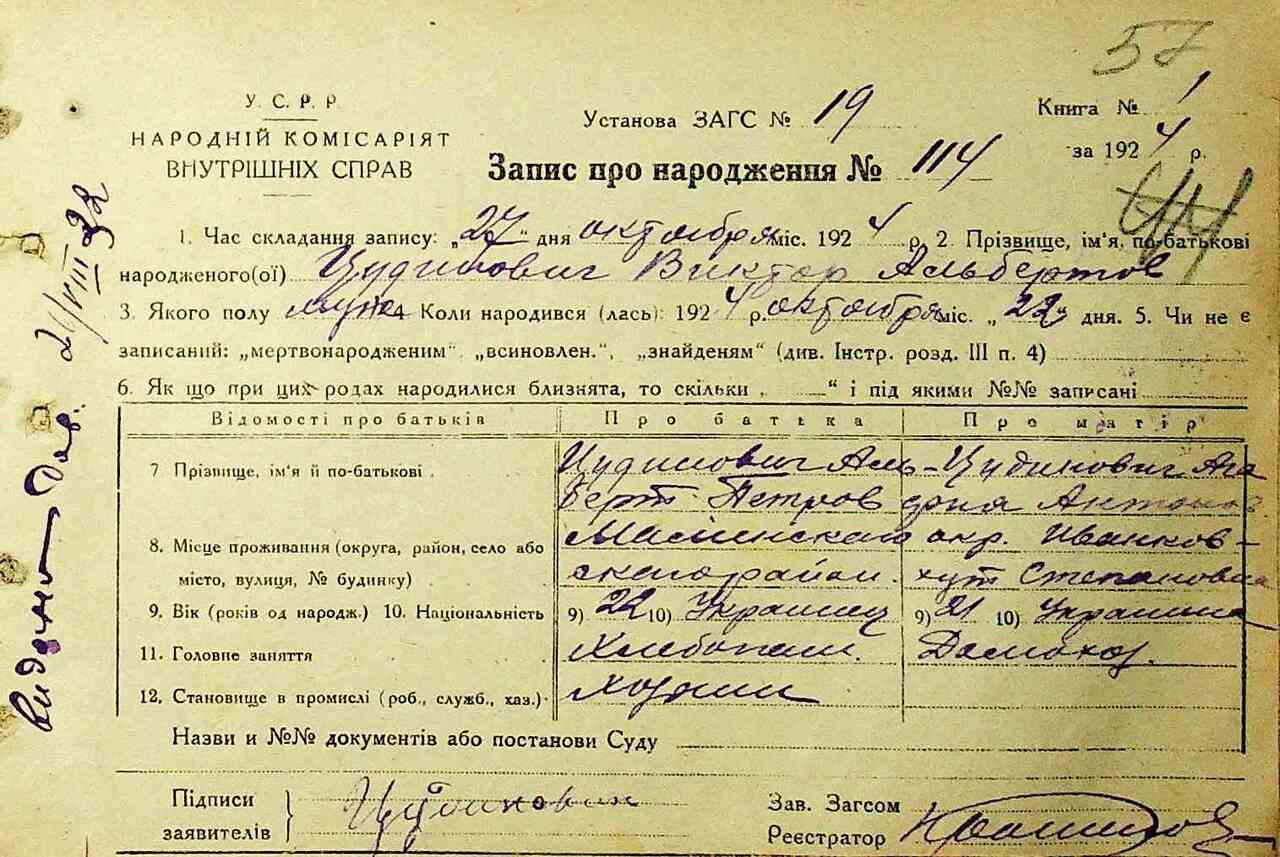 57
У. С. Р. Р.
НАРОДНІЙ КОМІСАРІЯТ
ВНУТРІШНІХ СПРАВ
Установа ЗАГС № 19
Книга № 1
за 1924 р.
Запис про народження № 114
1. Час складання запису: „27“ дня октября міс. 1924 р. 2. Прізвище, ім'я, по-батькові
народженого(ої) Цудинович Виктор Альбертов
3. Якого полу муж 4 Коли народився (лась): 1924 р. октября міс. „22“ дня. 5. Чи не є
записаний: „мертвонародженим“, „всиновлен.“, „знайденям“ (див. Інстр. розд. III п. 4)
6. Як що при цих родах народилися близнята, то скільки „ “ і під якими №№ записані
Відомості про батьків Про батька Про матір
7 Прізвище, ім'я й по-батькові Цудинович Аль- Цудинович Ага
берт Петров фия Антонов
8. Місце проживання (округа, район, село або Малинскаго окр. Иванков-
місто, вулиця, № будинку) скаго район. хут Степановка
9. Вік (років од народж.) 10. Національність 9) 22 10) Украинец 9) 21 10) Украинка
11. Головне заняття Хлебопаш. Домохоз.
12. Становище в промислі (роб., служб., хаз.) Хозяин
Назви и №№ документів або постанови Суду
Підписи
заявителів
Цудинович
Зав. Загсом
Реєстратор